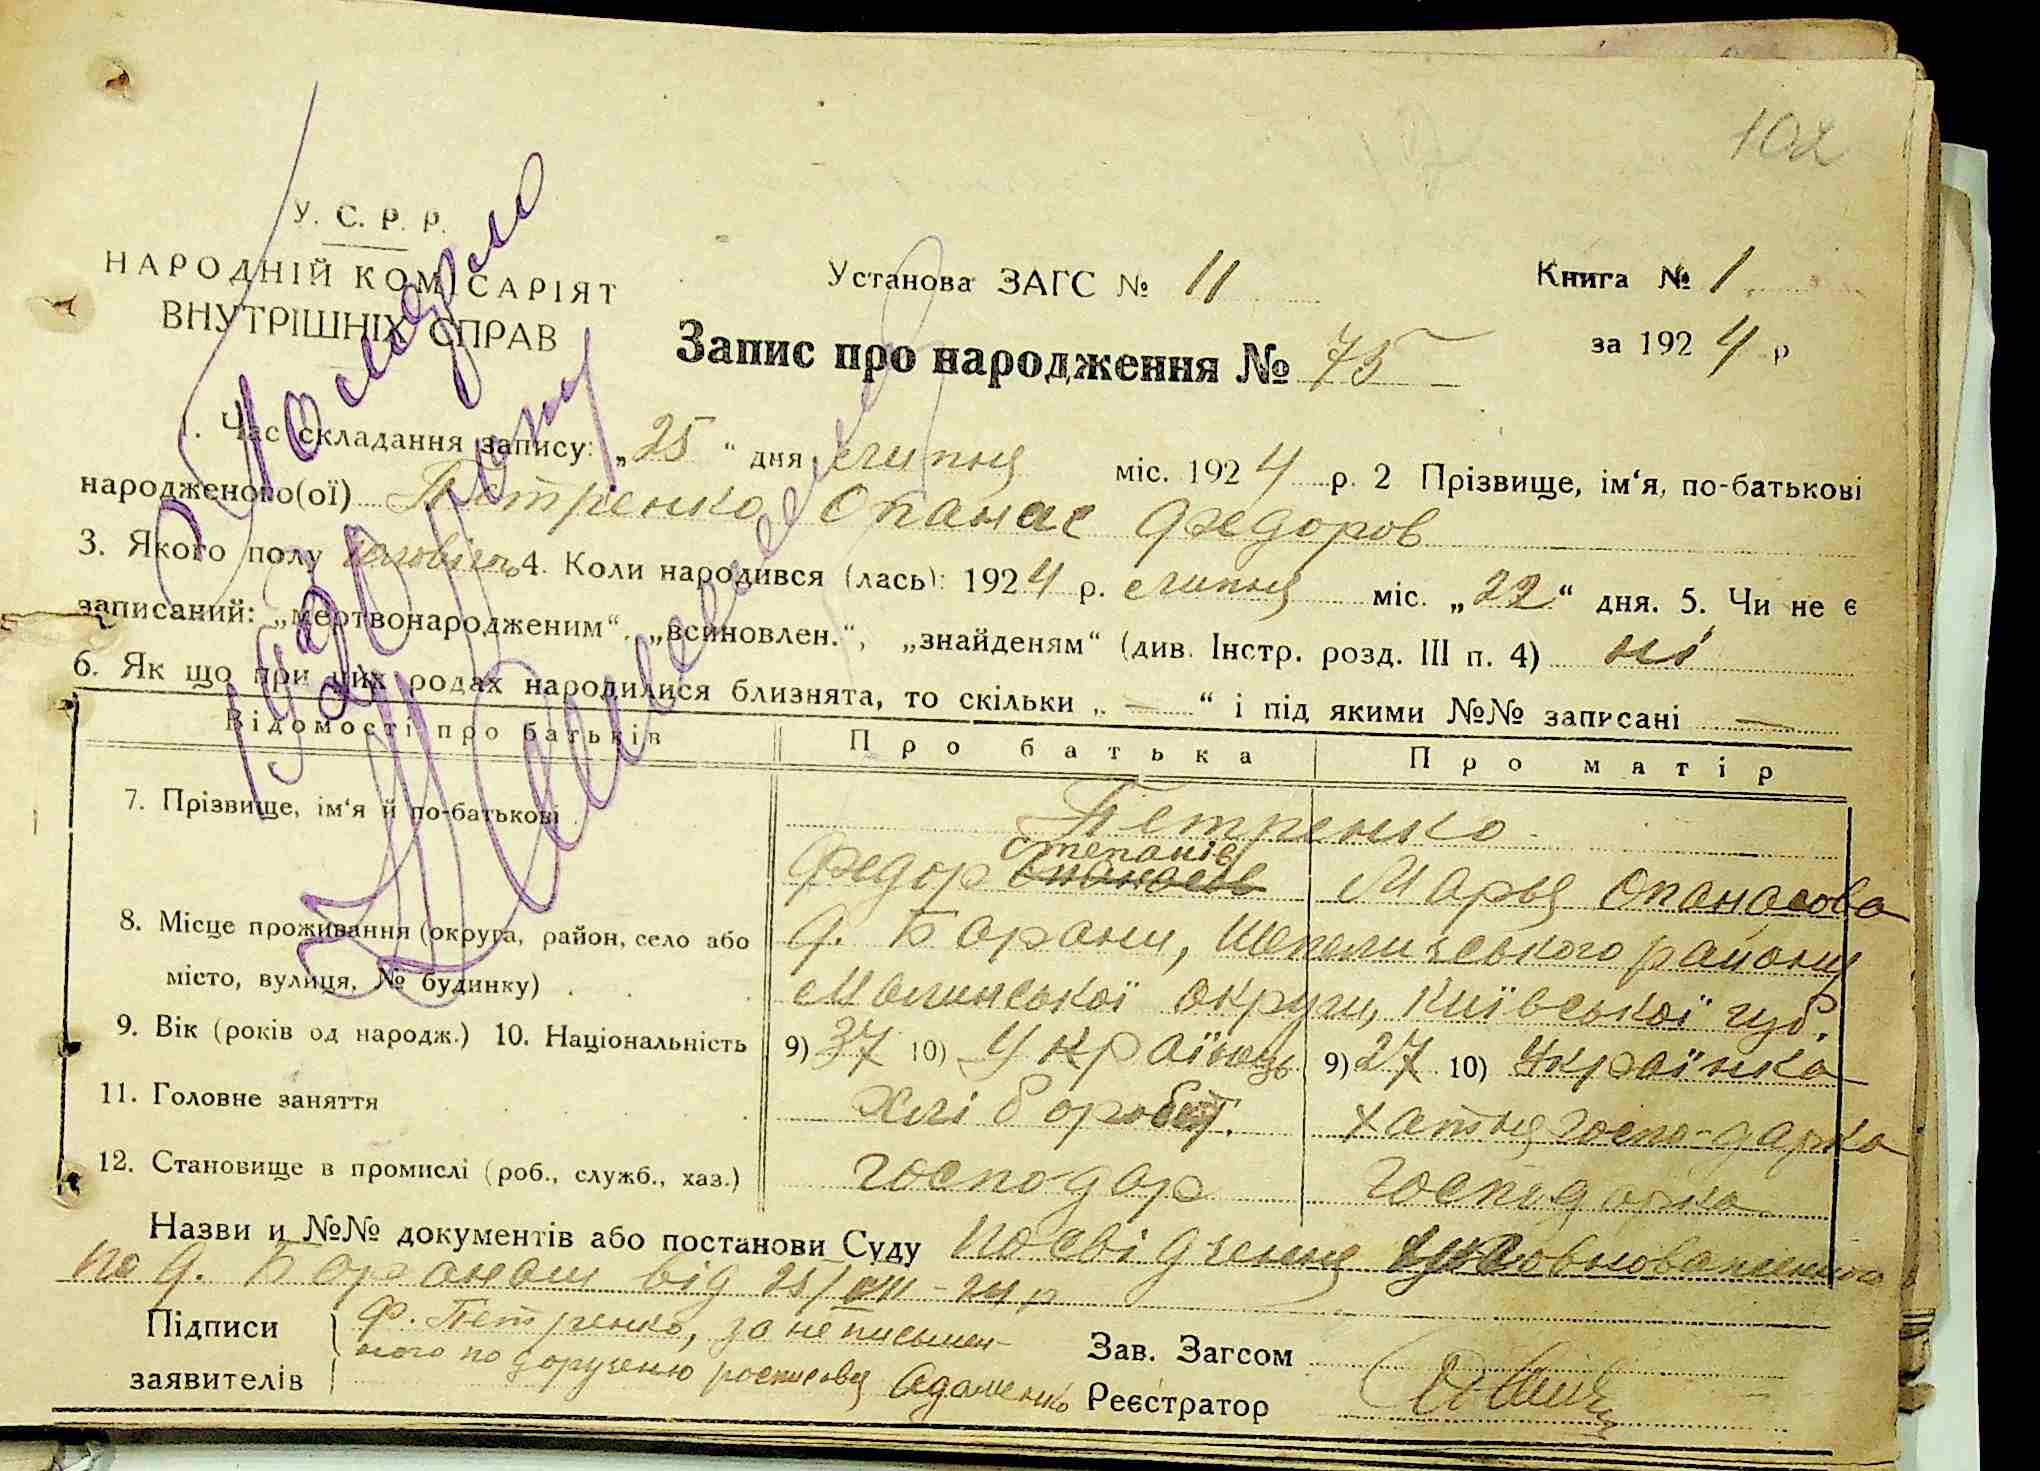 102
У. С. Р. Р.
НАРОДНІЙ КОМІСАРІЯТ
ВНУТРІШНІХ СПРАВ
Установа ЗАГС № 11
Книга № 1
за 1924 р
Запис про народження № 75
1. Час складання запису: „25“ дня липня міс. 1924 р. 2 Прізвище, ім‘я, по-батькові
народженого(ої) Петренко Опанас Федоров
3. Якого полу чоловіч. 4. Коли народився (лась): 1924 р. липня міс. „22“ дня. 5. Чи не є
записаний: „мертвонародженим“, „всиновлен.“, „знайденям“ (див. Інстр. розд. III п. 4) ні
6. Як що при цих родах народилися близнята, то скільки „ — “ і під якими №№ записані —
Відомості про батьків Про батька Про матір
7. Прізвище, ім‘я й по-батькові Петренко
Степанів
Федор Опанасов Марья Опанасова
8. Місце проживання (округа, район, село або
місто, вулиця, № будинку)
д. Борани, Шепелическього району
Малинської округи, Київської губ.
9. Вік (років од народж.) 10. Національність 9) 37 10) Українець 9) 27 10) Українка
11. Головне заняття Хлібороб. хатня госпо-дарка
12. Становище в промислі (роб., служб., хаз.) господар господарка
Назви и №№ документів або постанови Суду Посвідчення уповноваженного
по д. Боранам від 25/VII-24 р
Підписи
заявителів
Ф. Петренко, за неписьмен-
ного по дорученю росписався Адаменко
Зав. Загсом
Реєстратор